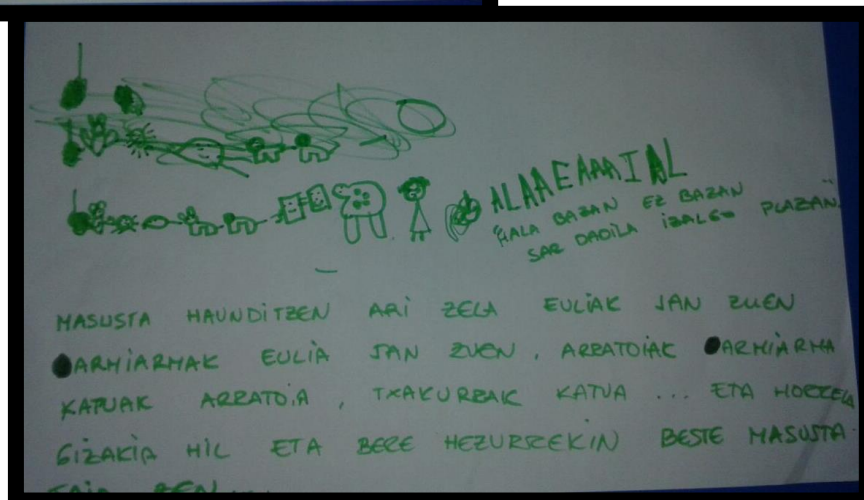 ALAAEAAAIAL
"HALA BAZAN EZ BAZAN
SAR DADILA IZALGO PLAZAN"
MASUSTA HAUNDITZEN ARI ZELA EULIAK JAN ZUEN
ARMIARMAK EULIA JAN ZUEN, ARRATOIAK ARMIARMA
KATUAK ARRATOIA, TXAKURRAK KATUA ... ETA HORRELA
GIZAKIA HIL ETA BERE HEZURREKIN BESTE MASUSTA